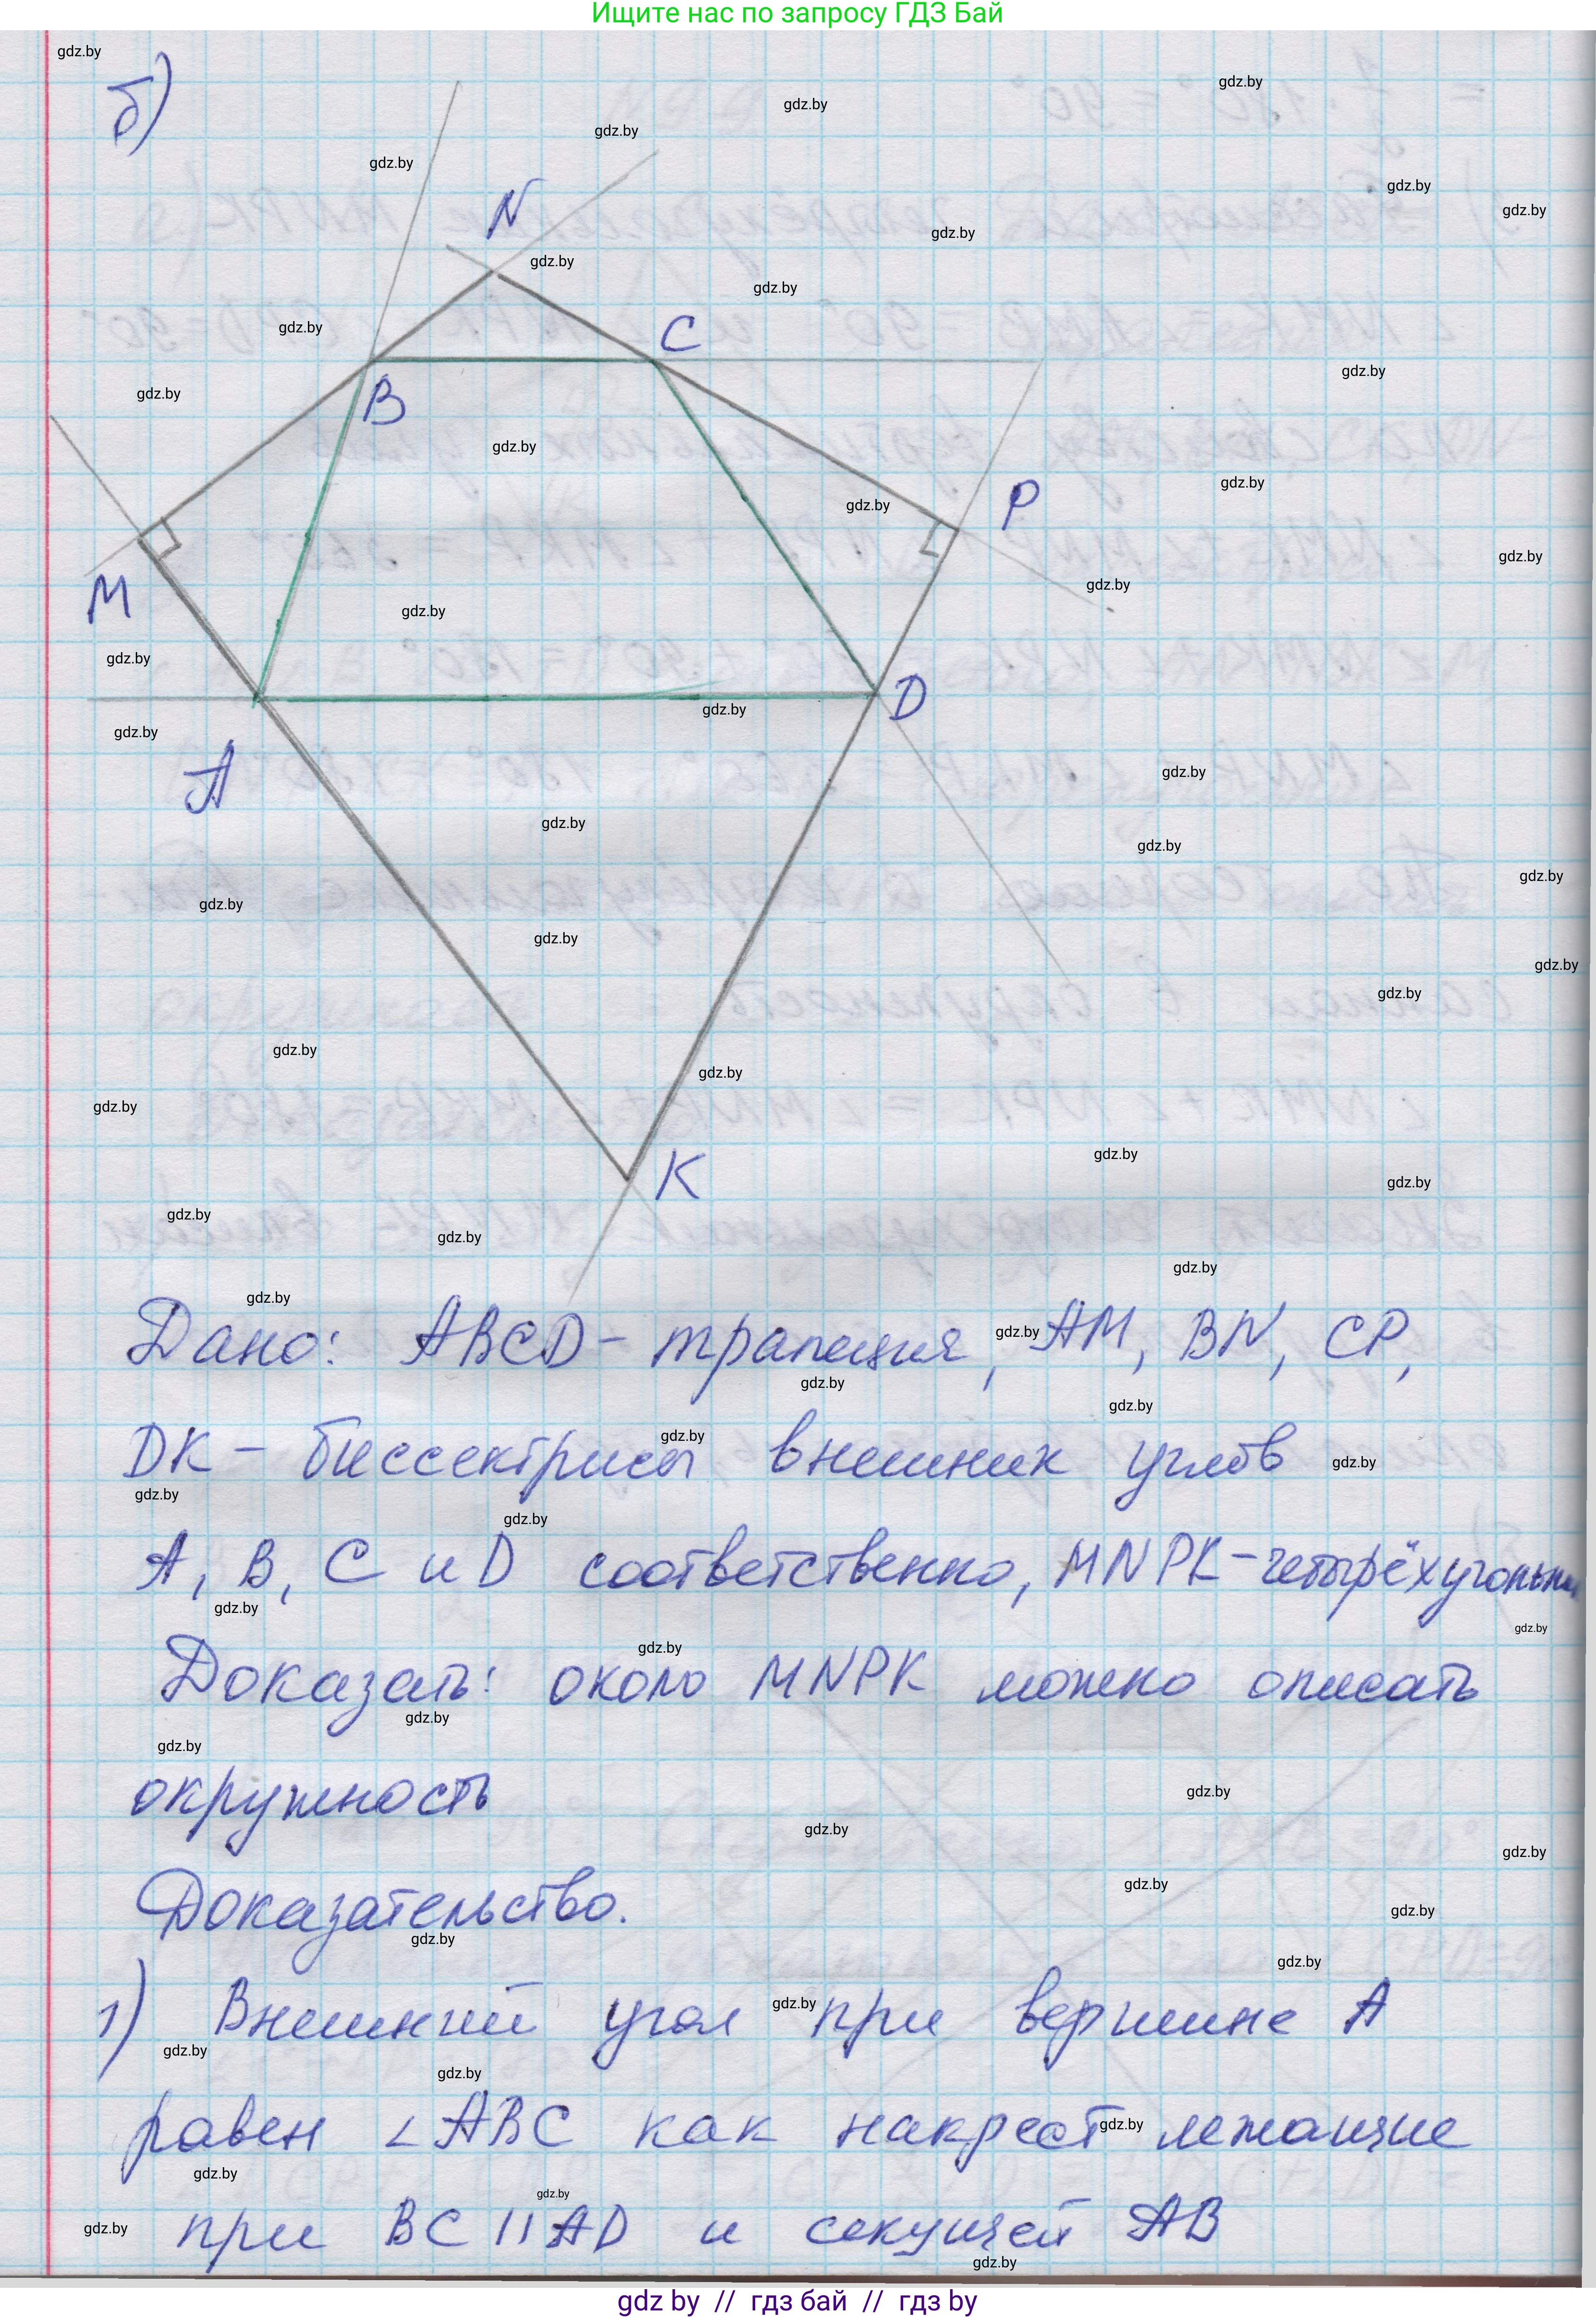 Ищите нас по запросу ГДЗ Бай
б)
N
C
B
P
M
D
A
K
Дано: ABCD - трапеция, AM, BN, CP,
DK - биссектрисы внешних углов
A, B, C и D соответственно, MNPK - четырёхугольник
Доказать: около MNPK можно описать
окружность
Доказательство.
1) Внешний угол при вершине A
равен ∠ABC как накрест лежащие
при BC || AD и секущей AB
gdz by // гдз бай // гдз by